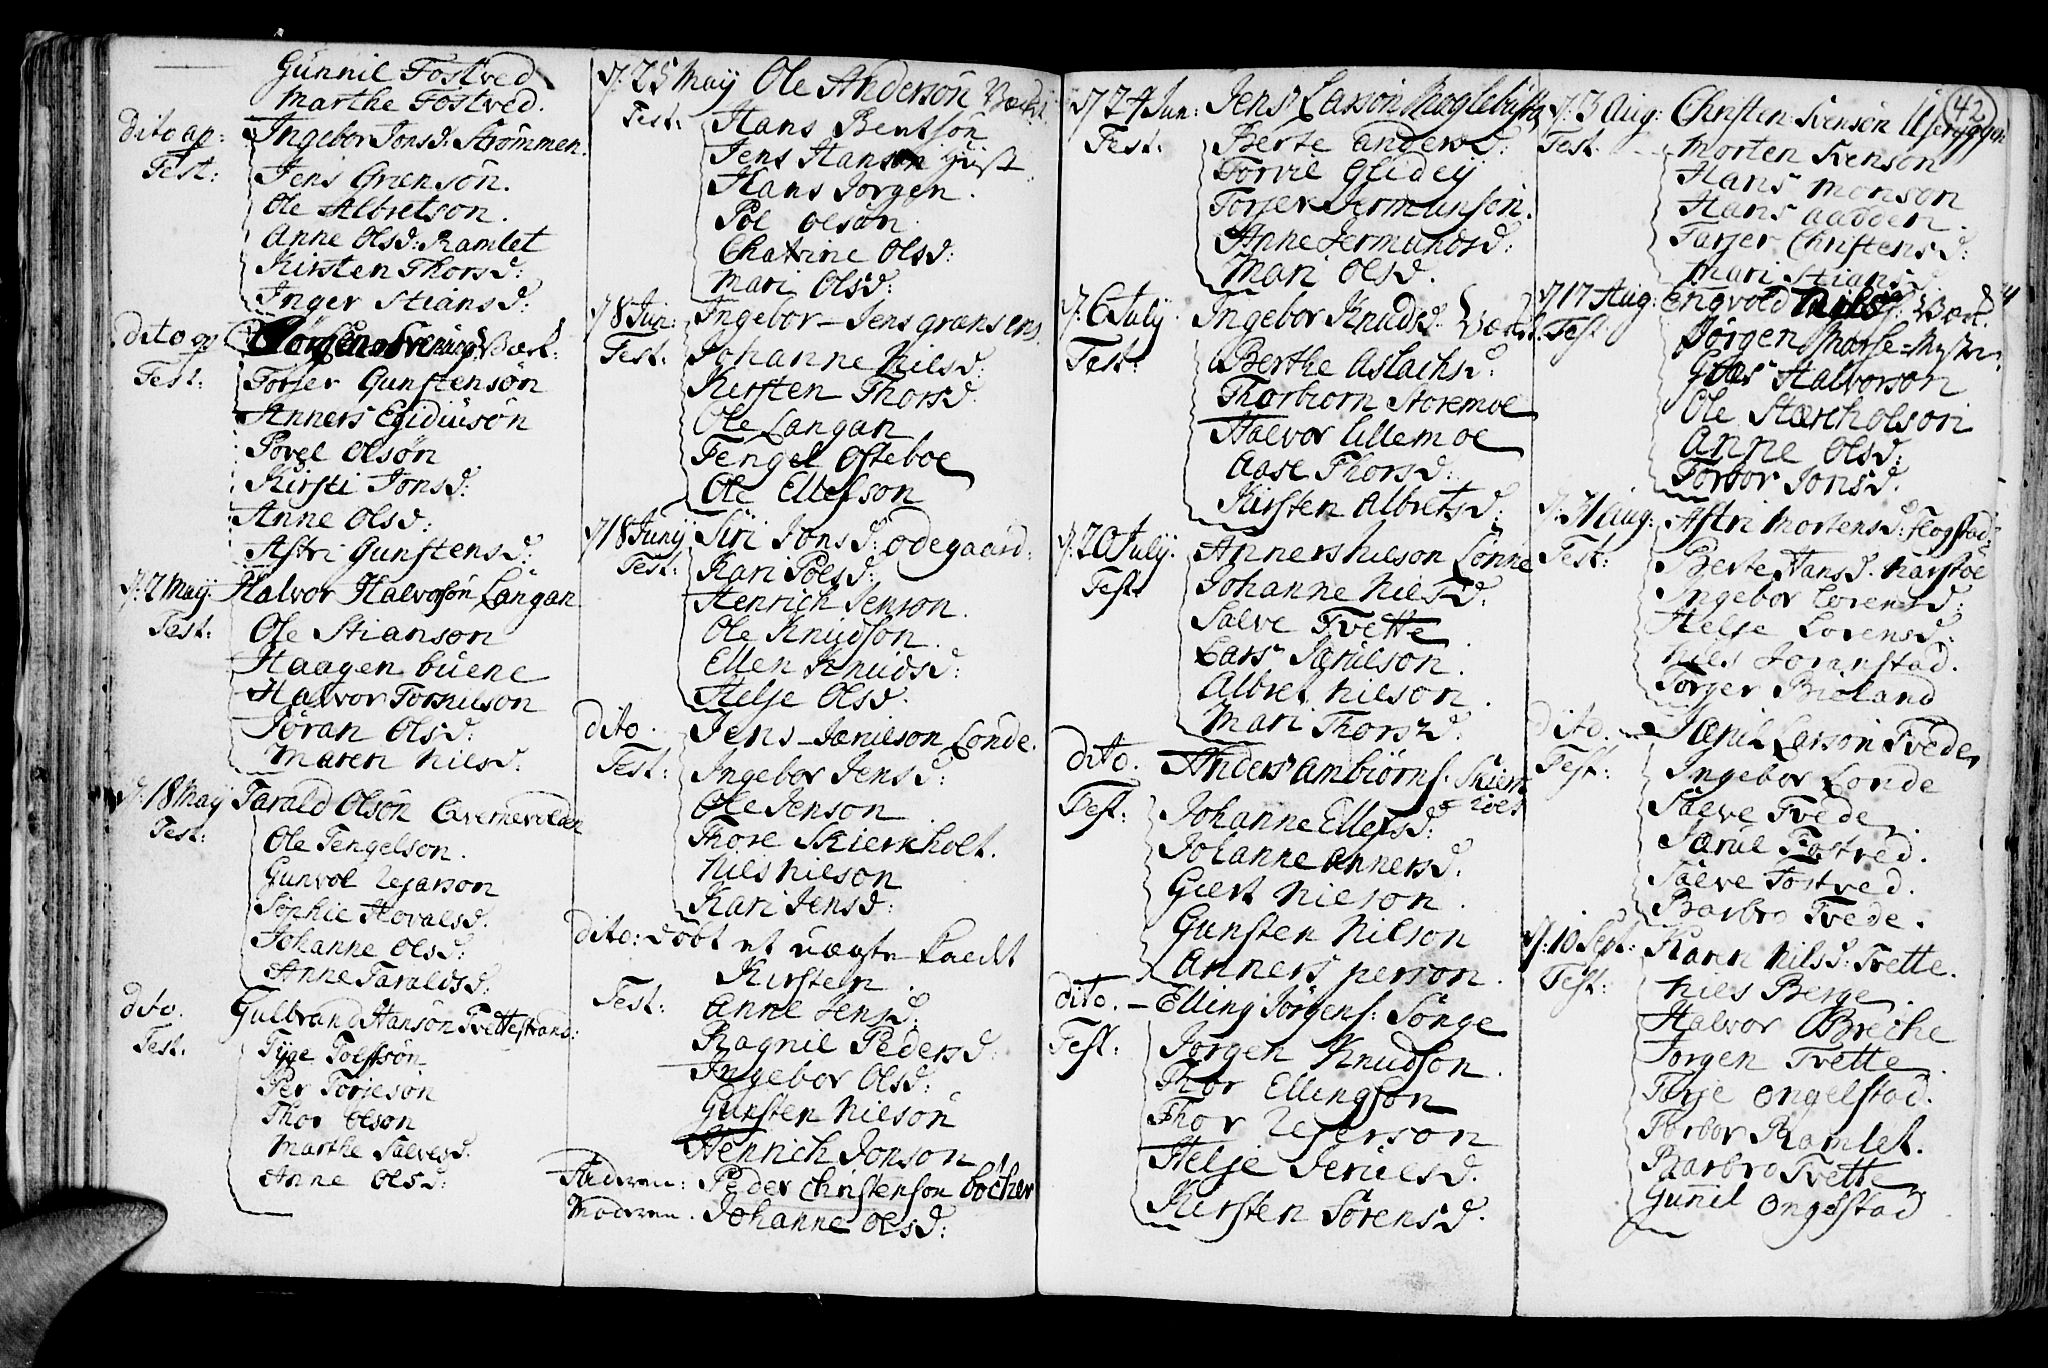 Gunnil Fostved
Marthe Fostved.
dito ap: Ingebor Jonsd: Strømmen.
Test: Jens Grænsøn.
Ole Albretson.
Anne Olsd: Ramlet
Kirsten Thorsd:
Inger Stiansd:
dito
Test: Torjer Gunstensøn
Anners Egidiusøn
Povel Olsøn
Kirsti Jonsd:
Anne Olsd:
Astri Gunstensd:
d: 2 May. Halvor Halvorsøn Langan
Test: Ole Stianson
Haagen buene
Halvor Tornilson
Jøran Olsd:
Maren Nilsd:
d: 18 May Tarald Olsøn
Test: Ole Tengelson.
Gunvol
Sophie
Johanne Olsd:
Anne Taraldsd:
dito. Gulbrand Hansøn Tvettestrand:
Test: Tÿge
Per Torjeson
Thor Olson
Marthe Salvesd.
Anne Olsd:
d: 25 May Ole Andersøn
Test: Hans Bentsøn
Jens Hanson
Hans Jorgen.
Poe Olsøn
Chatrine Olsd:
Mari Olsd:
d 8 Jun: Ingebor Jens grænsens
Test: Johanne Nilsd:
Kirsten Thorsd.
Ole Langan
Tengel Ofteboe
Ole Ellefson
d 18 Junÿ Siri Jonsd: Ødegaard:
Test: Kari Poesd:
Henrich Jenson.
Ole Knudson.
Ellen Knudsd:
Helje Olsd.
dito. Jens Jænilson Londe.
Test: Ingebor Jensd:
Ole Jenson
Thore Skierkholt.
Nils Nielson
Kari Jensd:
dito: døbt et uægte kaedt
Kirsten.
Test: Anne Jensd:
Ragnil Pedersd:
Ingebor Olsd:
Gunsten Nilsøn
Henrich Jonson
Faderen: Peder Christenson
Moderen. Johanne Olsd:
d 24 Jun: Jens Larson
Test: Berte Andersd:
Torvil Glidey
Torjer Jermunson.
Anne Jermundsd:
Mari Olsd.
d. 6 July Ingebor Knudsd.
Test: Berthe Aslachsd:
Thorbiorn Storemoe
Halvor Lillemoe
Aase Thorsd:
Kirsten Albretsd:
d. 20 July. Anners Nilson Lønne
Test. Johanne Nilsd:
Salve Tvette
Lars
Albret Nilson.
Mari Thorsd.
dito. Anders Ambiørns:
Test: Johanne Ellefsd:
Johanne Annersd.
Giert Nielson.
Gunsten Nilson
Anners person.
dito. Elling Jörgens: Songe
Test: Jorgen Knudson.
Thor Ellingson
Thor
Helje
Kirsten Sørensd.
42
d. 3 Aug: Christen Svensøn
Test Morten Svenson
Hans Monson
Hans aadden.
Tarjer Christensd:
Mari Stiansd.
d 17 Aug: Engvold
Test Jorgen
Halvorson
Ole Stærcholson
Anne Olsd:
Torbor Jonsd.
d. 31 Aug: Astri Mortensd: Flogstad:
Test: Berte Hansd. Narstoe
Ingebor Lorensd:
Helje Lorensd:
Niels Joranstad.
Torger Bieland
dito. Larson Tvede,
Test: Ingebor Londe
Salve Tvede,
Fostved.
Salve Fostved.
Barbro Tvede.
d: 10 Sept: Karen Nilsd: Tvette.
Test: Niels Berge.
Halvor Breche
Jorgen Tvette.
Tarje Ongelstad.
Torbor Ramlet.
Baarbro Tvette
Gunil Ongelstad